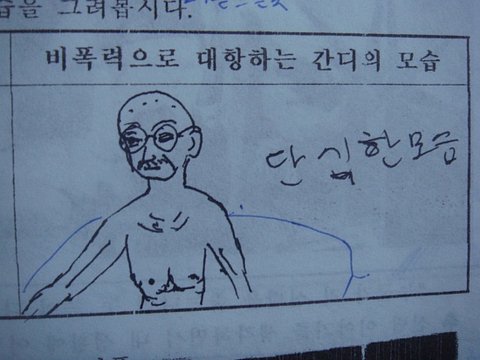 습을 그려봅시다.
비폭력으로 대항하는 간디의 모습
단식한모습